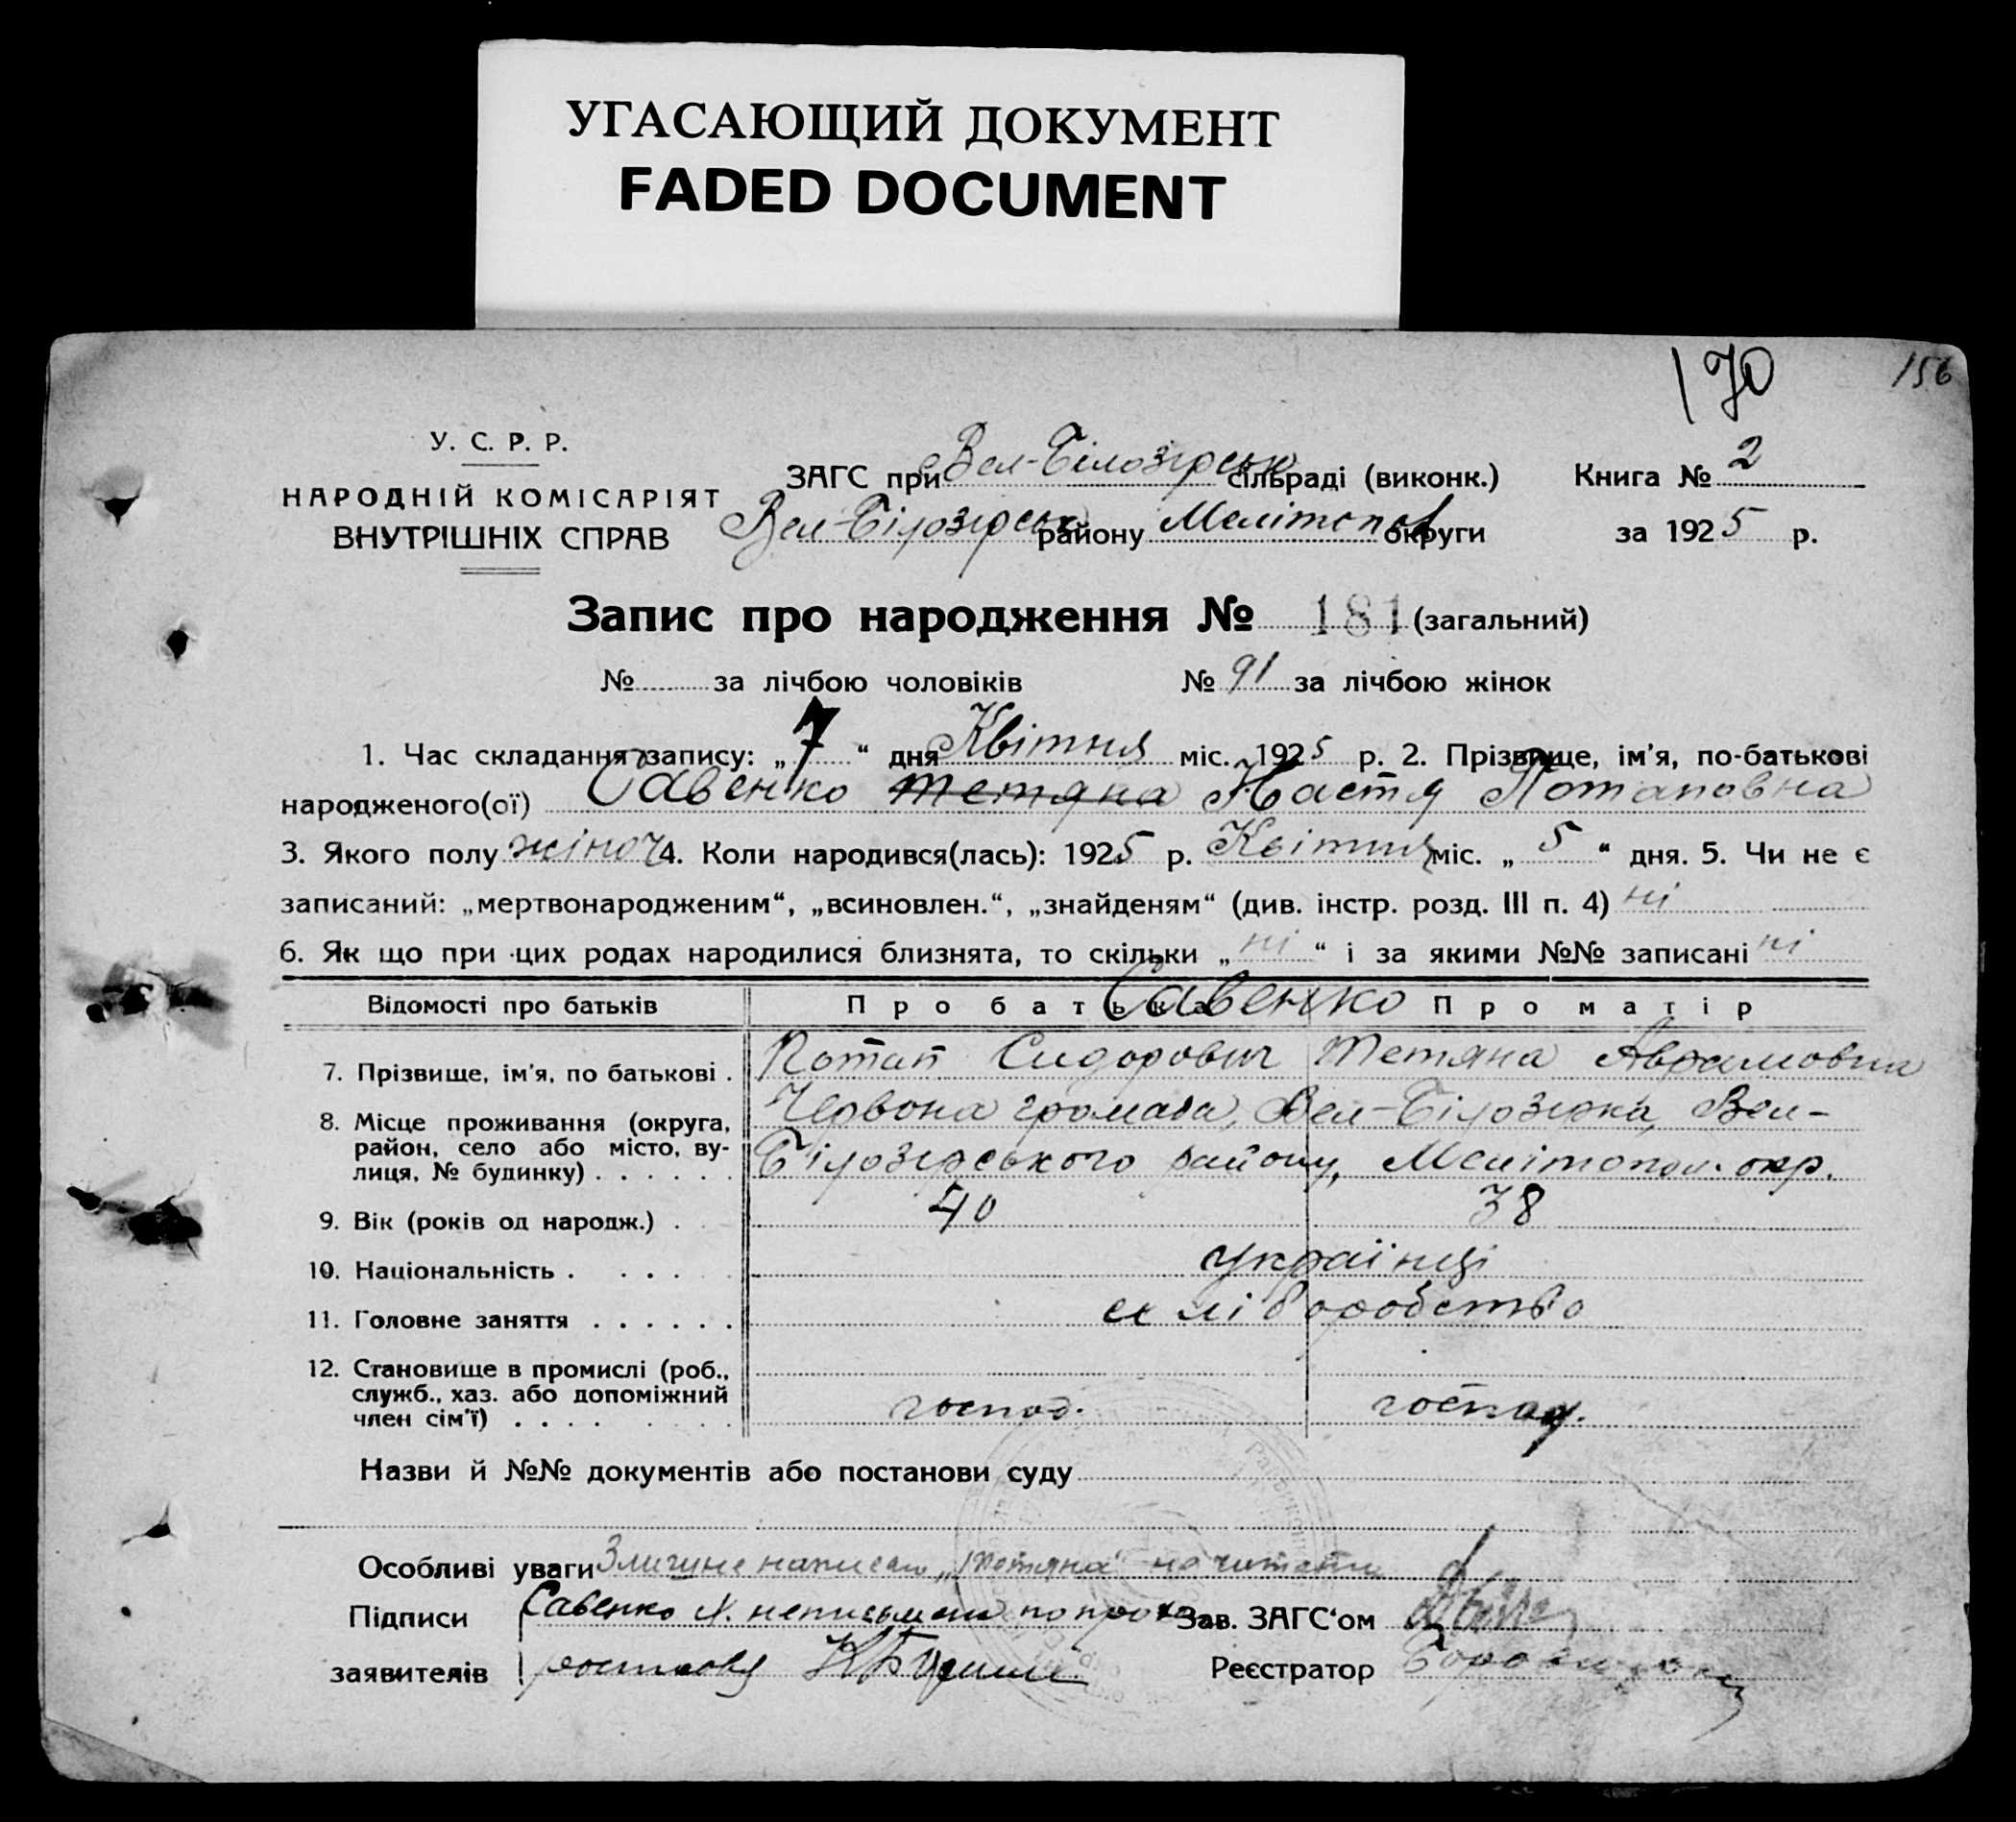 УГАСАЮЩИЙ ДОКУМЕНТ
FADED DOCUMENT
170
156
У. С. Р. Р.
НАРОДНІЙ КОМІСАРІЯТ
ВНУТРІШНІХ СПРАВ
ЗАГС при Вел-Білозірськ сільраді (виконк.) Книга № 2
Вел-Білозірськ району Мелітопол округи за 1925 р.
Запис про народження № 181 (загальний)
№ за лічбою чоловіків № 91 за лічбою жінок
1. Час складання запису: „7“ дня Квітня міс. 1925 р. 2. Прізвище, ім’я, по-батькові
народженого(ої) Савенко Тетяна Настя Потаповна
3. Якого полу жіноч 4. Коли народився(лась): 1925 р. Квітня міс. „5“ дня. 5. Чи не є
записаний: „мертвонародженим“, „всиновлен.“, „знайденям“ (див. інстр. розд. III п. 4) ні
6. Як що при цих родах народилися близнята, то скільки „ні“ і за якими №№ записані ні
Відомості про батьків Про батька Савенко Про матір
7. Прізвище, ім’я, по батькові . Потап Сидорович Тетяна Аврамовна
8. Місце проживання (округа, Червона громада, Вел-Білозірка, Вел-
район, село або місто, ву-
лиця, № будинку) . . . . . . Білозірського району, Мелітопол. окр.
9. Вік (років од народж.) . 40 38
10. Національність . . . . українці
11. Головне заняття . . . . . . хліборобство
12. Становище в промислі (роб.,
служб., хаз. або допоміжний
член сім’ї) . . . . господ. господ.
Назви й №№ документів або постанови суду
Особливі уваги написан „Тетяна“ не читати
Підписи Савенко неписьмен по Зав. ЗАГС‘ом
заявителів Реєстратор